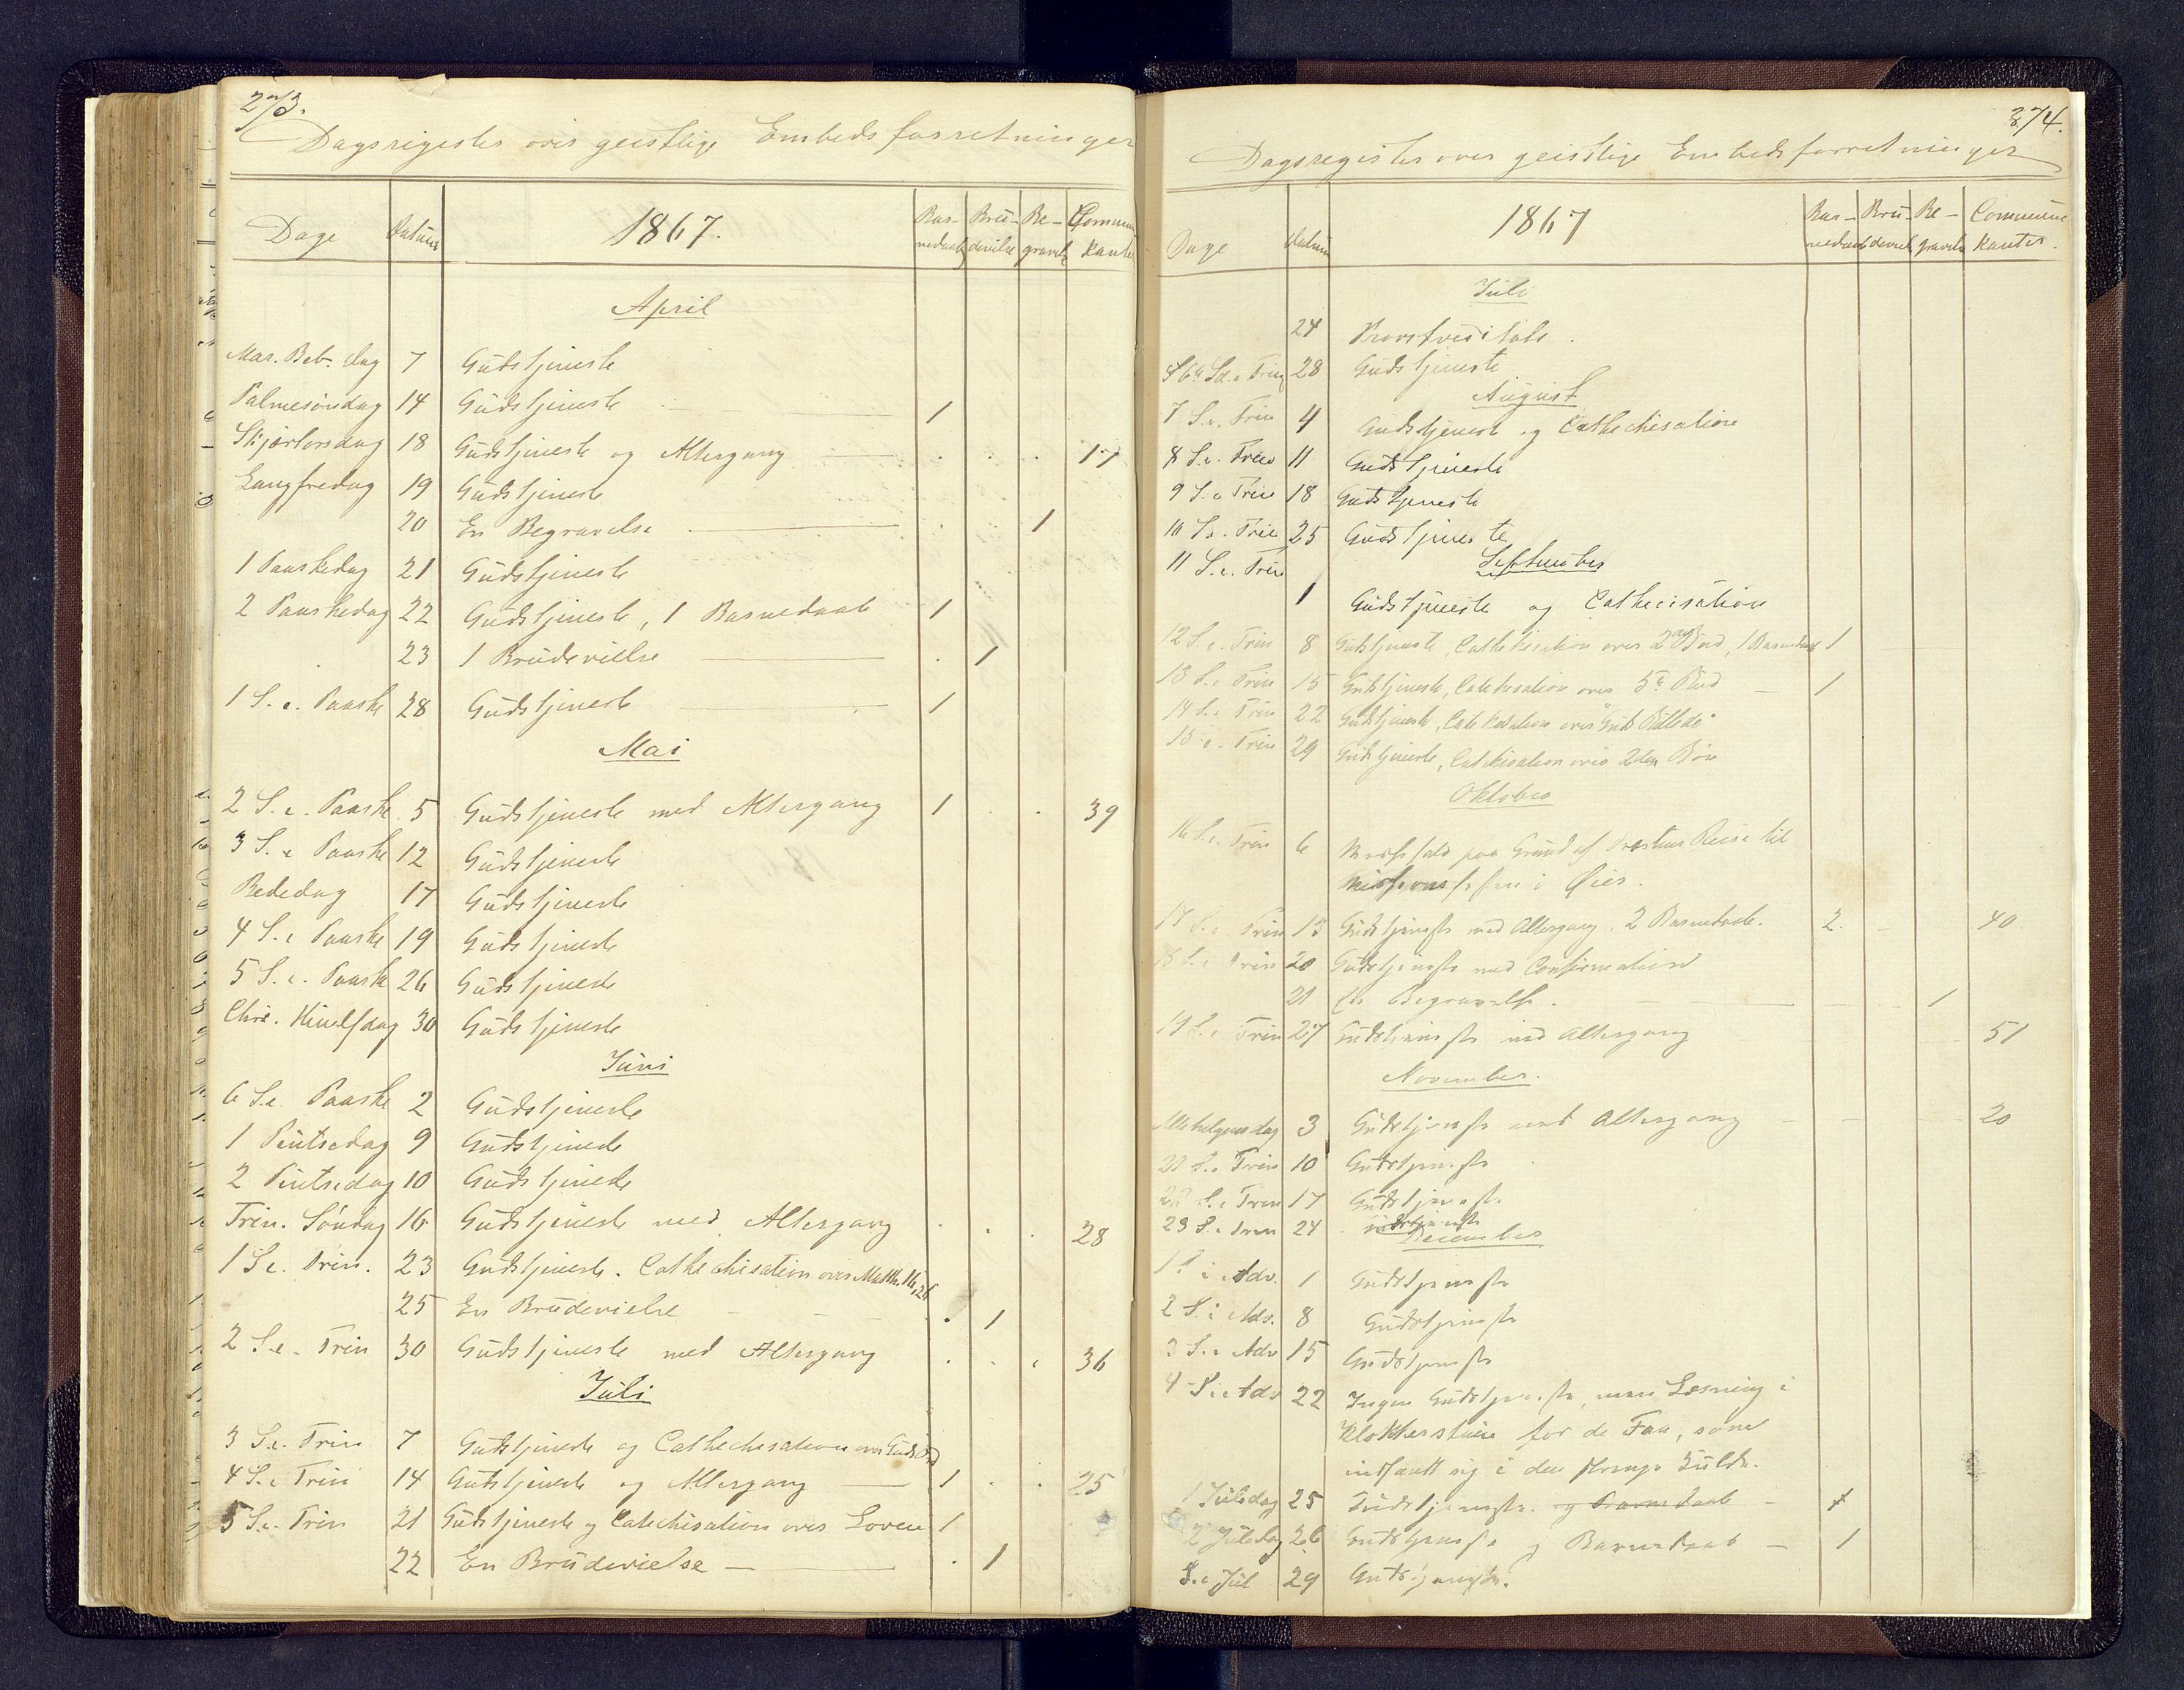 273.
Dagsregister over geistlige Embedsforretninger
Dage Datum 1867. Bar- Brü- Be- Commun
nedaab devielse gravelse kanter
April
Mar. Beb. dag 7 Gudstjeneste
Palmesöndag 14 Gudstjeneste 1
Skjærtorsdag 18 Gudstjeneste og Altergang 17
Langfredag 19 Gudstjeneste
20 En Begravelse 1
1 Paaskedag 21 Gudstjeneste
2 Paaskedag 22 Gudstjeneste, 1 Barnedaab 1
23 1 Brüdevielse 1
1 S. e. Paaske 28 Gudstjeneste 1
Mai
2 S. e. Paaske 5 Gudstjeneste med Altergang 1 39
3 S. e Paaske 12 Gudstjeneste
Bededag 17 Gudstjeneste
4 S. e Paaske 19 Gudstjeneste
5 S. e. Paaske 26 Gudstjeneste
Chri. Himelfdag 30 Gudstjeneste
Juni
6 S.e. Paaske 2 Gudstjeneste
1 Pintsedag 9 Gudstjeneste
2 Pintsedag 10 Gudstjeneste
Trin. Söndag 16 Gudstjeneste med Altergang 28
1 S e. Trin. 23 Gudstjeneste. Cathechisation over Matth. 16, 26
25 En Brüdevielse 1
2 S. e. Trin 30 Gudstjeneste med Altergang 36
Juli
3 S.e. Trin 7 Gudstjeneste og Cathechisation over Guds Ord
4 S. e Trin 14 Gudstjeneste og Altergang 1 25
5 S.e. Trin 21 Gudstjeneste og Catechisation over Loven 1
22 En Brüdevielse 1
274.
Dagsregister over geistlige Embedsforretninger
Dage Datum 1867 Bar- Brü- Be- Commune
nedaab deviels gravelse kanter.
Juli
24 Provstvisitats.
6te S. e. Trin 28 Gudstjeneste
August
7 S. e. Trin 4 Gudstjeneste og Cathechisation
8 S. e. Trin 11 Gudstjeneste
9 S. e Trin 18 Gudstjeneste
10 S e. Trin 25 Gudstjeneste
11 S. e. Trin September
1 Gudstjeneste og Cathecisation
12 S. e. Trin 8 Gudstjeneste, Cathekisation over 2det Bud, 1 Barnedaab 1
13 S. e Trin 15 Gudstjeneste, Catekisation over 5te Bud 1
14 S. e Trin 22 Gudstjeneste, Catekisation over "Guds Billede"
15 e. Trin 29 Gudstjeneste, Catekisation over 2den Bön
Oktober
16 S. e. Trin 6 Messefald paa Grund af Præstens Reise til
Missionsfesten i Øier.
17 S. e. Trin 13 Gudstjeneste med Altergang. 2 Barnedaab. 2. 40
18 S. e Trin 20 Gudstjeneste med Confirmation
21 En Begravelse. 1
19 S. e Trin 27 Gudstjeneste med Altergang 51
November.
Allehelgensdag 3 Gudstjeneste med Altergang 20
21 S. e Trin 10 Gudstjeneste
22 S. e Trin 17 Gudstjeneste
23 S. e Trin 24 Gudstjeneste
December
1 S i Adv. 1 Gudstjeneste
2 S. i Adv. 8 Gudstjeneste
3 S. i Adv 15 Gudstjeneste
4 S. i Adv 22 Ingen Gudstjeneste, men Læsning i
Klokkerstuen for de Faa, som
indfandt sig i den strenge Kulde.
1 Juledag 25 Gudstjeneste. og Barnedaab 1
2 Juledag 26 Gudstjeneste og Barnedaab 1
S. e Jül 29 Gudstjeneste.